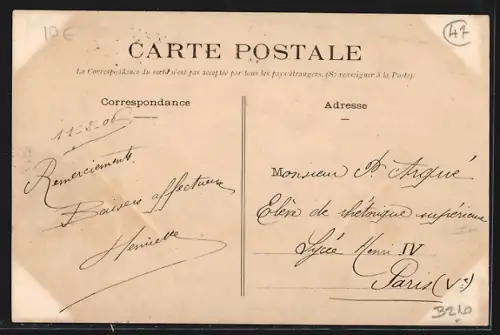 10€
47
CARTE POSTALE
La Correspondance du recto n'est pas acceptée par tous les pays étrangers. (Se renseigner à la Poste).
Correspondance
Adresse
11-3-06
Remerciements.
Baisers affectueux
Henriette
Monsieur P. Argué
Elève de rhétorique supérieure
Lycée Henri IV
Paris (Ve)
B210